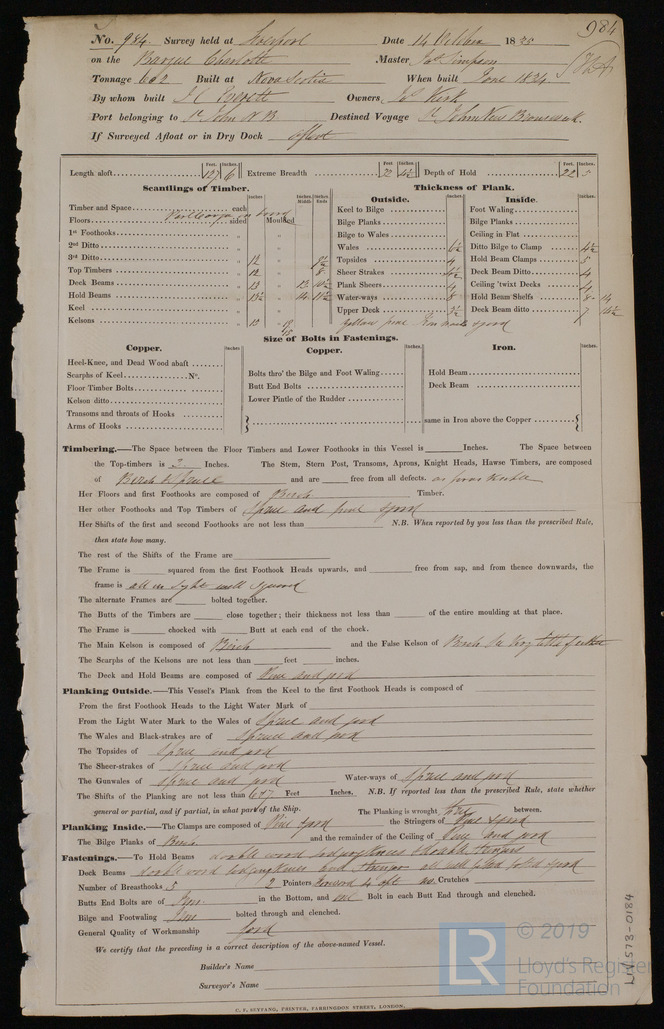 984
No. 984. Survey held at Liverpool Date 14 October 1835
on the Barque Charlotte Master Jas. Simpson
Tonnage 602 Built at Nova Scotia When built June 1834
By whom built J C Owners Js Kirk
Port belonging to St John N B Destined Voyage St John New Brunswick
If Surveyed Afloat or in Dry Dock afloat
Feet. Inches. Feet. Inches. Feet. Inches.
Length aloft 127 6 Extreme Breadth 4½ Depth of Hold 22 5
Scantlings of Timber. Thickness of Plank.
Inches Inches Middle Inches Ends Outside. Inches Inside. Inches
Timber and Space each Keel to Bilge Foot Waling
Floors sided Moulded Bilge Planks Bilge Planks
1st Foothooks „ „ Bilge to Wales Ceiling in Flat
2nd Ditto „ „ Wales 6½ Ditto Bilge to Clamp 4½
3rd Ditto „ 12 „ Topsides 4 Hold Beam Clamps 5
Top Timbers „ 12 „ 8 Sheer Strakes 4½ Deck Beam Ditto 4
Deck Beams „ 13 „ Plank Sheers 4 Ceiling 'twixt Decks 4
Hold Beams „ 13½ „ 14 11½ Water-ways 8 Hold Beam Shelfs 8 14
Keel „ „ Upper Deck 3½ Deck Beam ditto 7
Kelsons „ 15 „ Yellow pine good
Size of Bolts in Fastenings.
Copper. Inches Copper. Inches Iron. Inches
Heel-Knee, and Dead Wood abaft
Scarphs of Keel No. Bolts thro' the Bilge and Foot Waling Hold Beam
Floor Timber Bolts Butt End Bolts Deck Beam
Kelson ditto Lower Pintle of the Rudder
Transoms and throats of Hooks
Arms of Hooks same in Iron above the Copper
Timbering.—The Space between the Floor Timbers and Lower Foothooks in this Vessel is Inches. The Space between
the Top-timbers is 2 Inches. The Stem, Stern Post, Transoms, Aprons, Knight Heads, Hawse Timbers, are composed
of Birch & Spruce and are free from all defects. as far as
Her Floors and first Foothooks are composed of Birch Timber.
Her other Foothooks and Top Timbers of Spruce and pine good
Her Shifts of the first and second Foothooks are not less than N.B. When reported by you less than the prescribed Rule,
then state how many.
The rest of the Shifts of the Frame are
The Frame is squared from the first Foothook Heads upwards, and free from sap, and from thence downwards, the
frame is all in sight well squared
The alternate Frames are bolted together.
The Butts of the Timbers are close together; their thickness not less than of the entire moulding at that place.
The Frame is chocked with Butt at each end of the chock.
The Main Kelson is composed of Birch and the False Kelson of Birch
The Scarphs of the Kelsons are not less than feet inches.
The Deck and Hold Beams are composed of Pine and good
Planking Outside.—This Vessel's Plank from the Keel to the first Foothook Heads is composed of
From the first Foothook Heads to the Light Water Mark of
From the Light Water Mark to the Wales of Spruce and good
The Wales and Black-strakes are of Spruce and good
The Topsides of Spruce and good
The Sheer-strakes of Spruce and good
The Gunwales of Spruce and good Water-ways of Spruce and good
The Shifts of the Planking are not less than 6 & 7 Feet Inches. N.B. If reported less than the prescribed Rule, state whether
general or partial, and if partial, in what part of the Ship. The Planking is wrought between.
Planking Inside.—The Clamps are composed of Pine good the Stringers of Pine & good
The Bilge Planks of Birch and the remainder of the Ceiling of Pine and good
Fastenings.—To Hold Beams double wood lodging knees
Deck Beams double wood lodging knees and all well bolted good
Number of Breasthooks 5 2 Pointers no Crutches
Butts End Bolts are of Iron in the Bottom, and one Bolt in each Butt End through and clenched.
Bilge and Footwaling Iron bolted through and clenched.
General Quality of Workmanship good
We certify that the preceding is a correct description of the above-named Vessel.
Builder's Name
Surveyor's Name
C. F. SEYFANG, PRINTER, FARRINGDON STREET, LONDON.
LR
© 2019
Lloyd's Register
Foundation
LIV573-0184